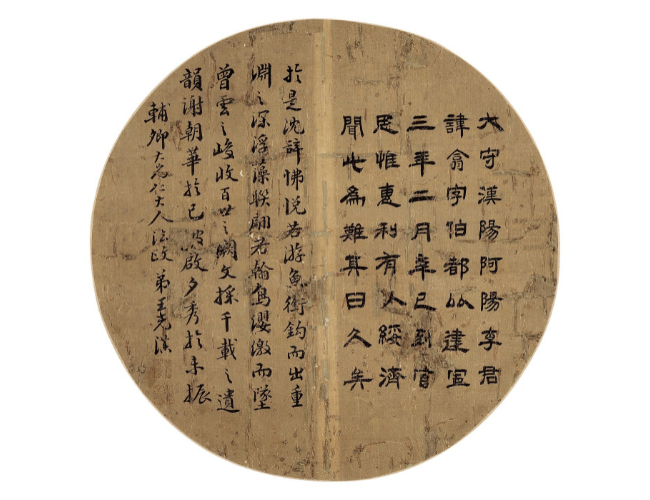 大守漢陽阿陽李君
諱翕字伯都以建寍
三年二月辛巳到官
思惟惠利有以綏濟
聞此為難其日久矣
於是沈辭怫悅若游魚銜鉤而出重
淵之深浮藻聯翩若翰鳥纓繳而墜
曾雲之峻收百世之闕文採千載之遺
韻謝朝華於已披啟夕秀於未振
輔卿大兄仁大人法政 弟王